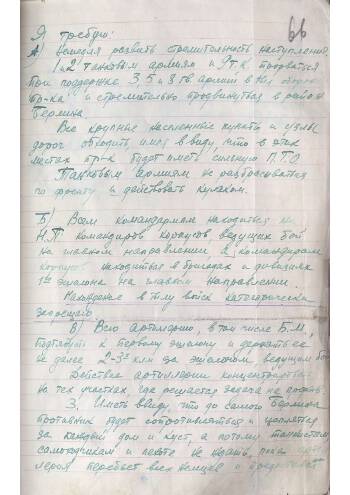 66
Я требую:
А) Немедля развить стремительность наступления.
1 и 2 танковым армиям и 9 т.к. прорваться
при поддержке 3, 5 и 8 гв. армий в тыл обороны
пр-ка и стремительно продвинуться в район
Берлина.
Все крупные населенные пункты и узлы
дорог обходить, имея в виду, что в этих
местах пр-к будет иметь сильную П.Т.О.
Танковым армиям не разбрасываться
по фронту и действовать кулаком.
Б) Всем командармам находиться на
Н.П. командиров корпусов, ведущих бой
на главном направлении, а командирам
корпусов находиться в бригадах и дивизиях
1го эшелона на главном направлении.
Нахождение в тылу войск категорически
запрещаю.
В) Всю артиллерию, в том числе Б.М.,
подтянуть к первому эшелону и держать ее
не далее 2-3х км за эшелоном, ведущим бой.
Действие артиллерии концентрировать
на тех участках, где решается задача на
3. Иметь в виду, что до самого Берлина
противник будет сопротивляться и цепляться
за каждый дом и куст, а потому танкистам,
самоходчикам и пехоте не ждать, пока
артиллерия перебьет всех немцев и предоставит